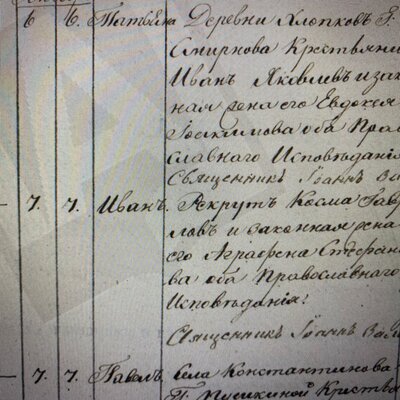 6 6. Татьяна Деревни Хлопковъ Г.
Смирнова Крестьяни
Иванъ Яковлевъ и закон
ная жена его Евдокея
Іоакимова оба Право
славнаго Исповѣданія
Священникъ Іоаннъ
7. 7. Иванъ. Рекрутъ Косма Гаври
ловъ и законная жена
его Аграфена Стефано
ва оба Православнаго
Исповѣданія.
Священникъ Іоаннъ
7. 7. Павелъ Села Константинова
Г. Пушкиной Крестья